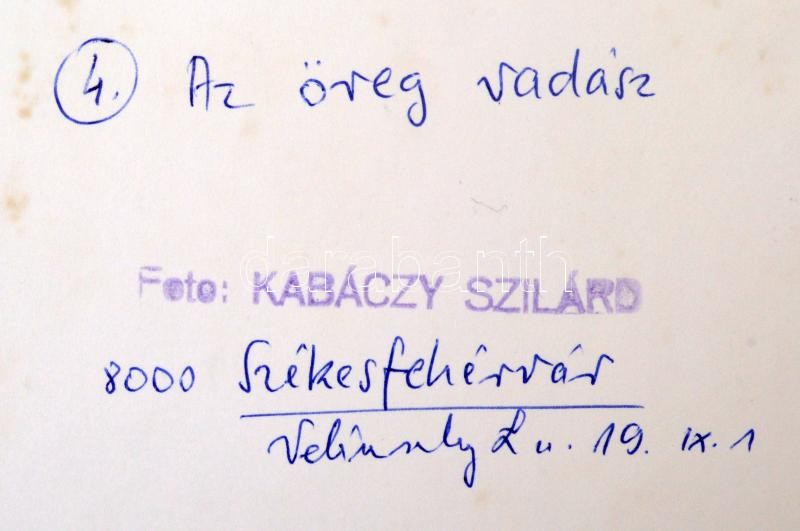 4. Az öreg vadász
darabanth
Foto: KABÁCZY SZILÁRD
8000 Székesfehérvár
Velinszky L u. 19. IX. 1